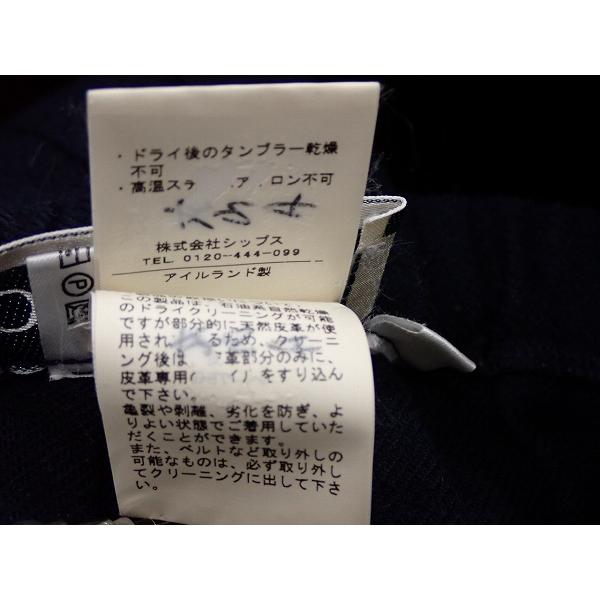 ・ドライ後のタンブラー乾燥
不可
・高温ス ア ロン不可
株式会社シップス
TEL. 0120-444-099
アイルランド製
この製品は、石油系自然乾燥
のドライクリーニングが可能
ですが部分的に天然皮革が使
用され るため、クリーニ
ング後は、 革部分のみに、
皮革専用 をすり込ん
で下さい。
亀裂や剥離、劣化を防ぎ、よ
りよい状態でご着用していた
だくことができます。
また、ベルトなど取り外しの
可能なものは、必ず取り外し
てクリーニングに出して下さ
い。